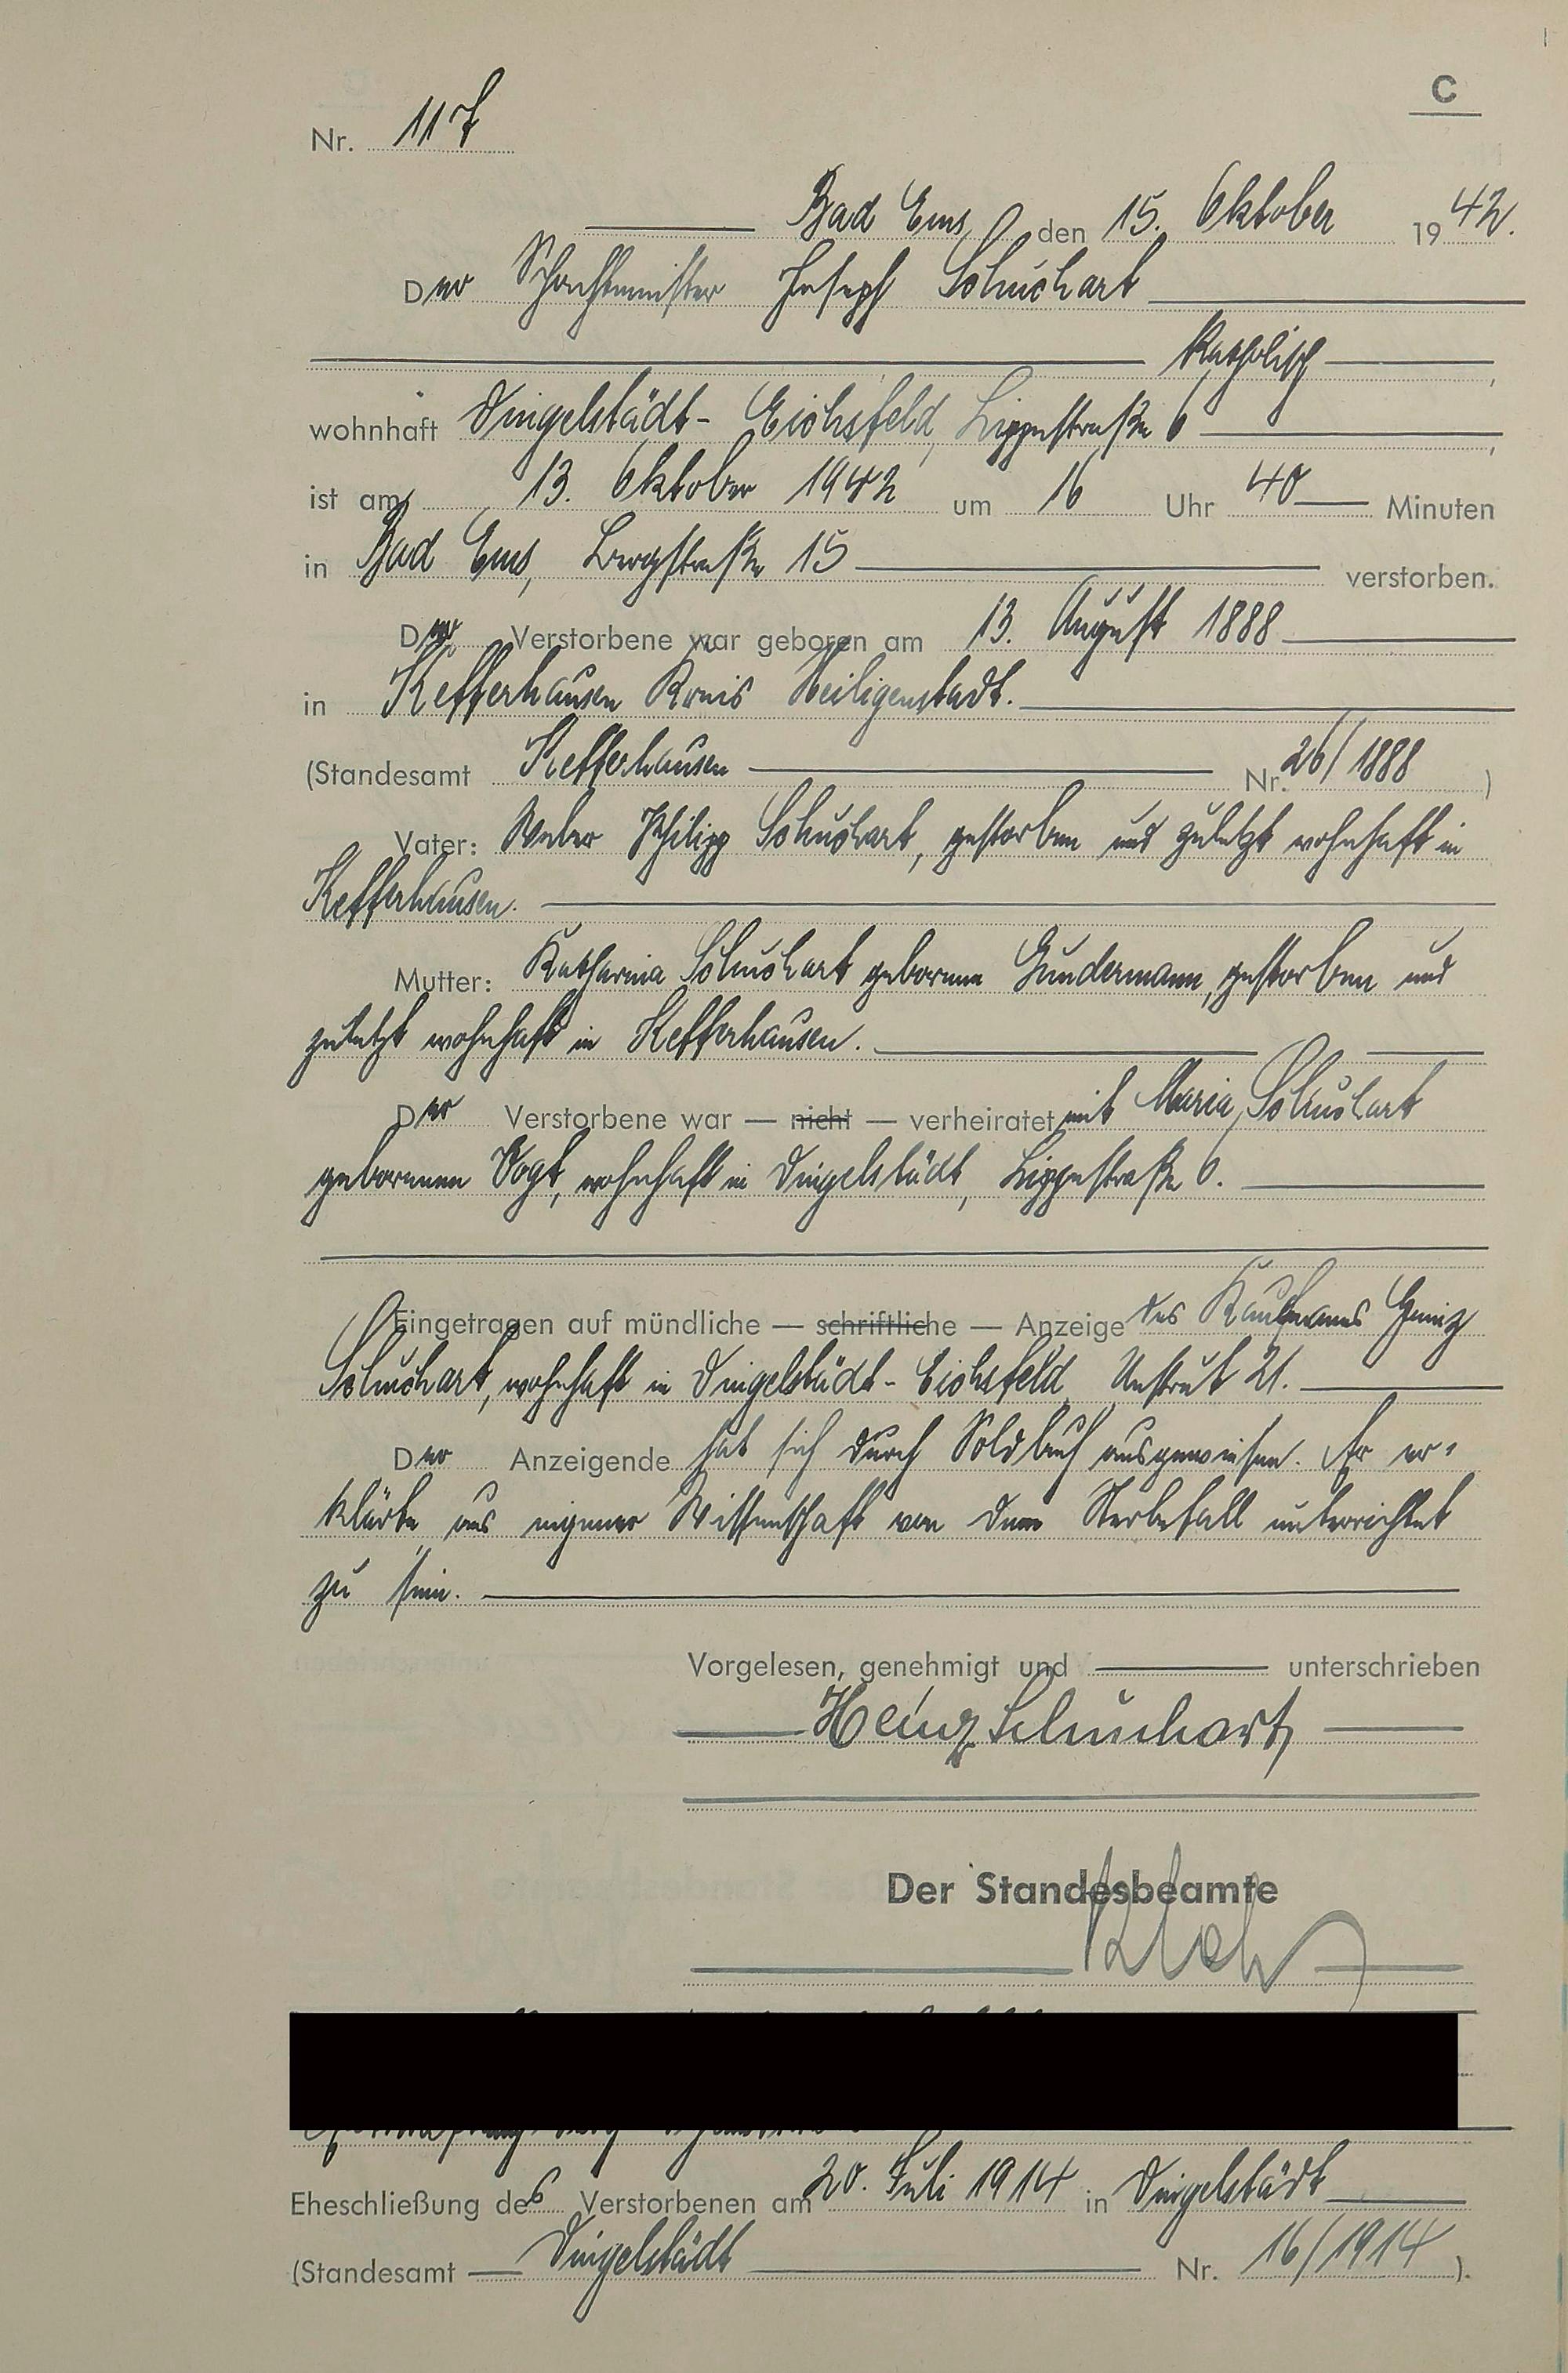 C
Nr. 117
Bad Ems, den 15. Oktober 1942.
Der Schachtmeister Joseph Schuchart
katholisch,
wohnhaft Dingelstädt-Eichsfeld, Lippestraße 6,
ist am 13. Oktober 1942 um 16 Uhr 40 Minuten
in Bad Ems, Bergstraße 15 verstorben.
Der Verstorbene war geboren am 13. August 1888
in Kefferhausen Kreis Heiligenstadt.
(Standesamt Kefferhausen Nr. 26/1888)
Vater: Weber Philipp Schuchart, gestorben und zuletzt wohnhaft in
Kefferhausen.
Mutter: Katharina Schuchart geborene Gundermann, gestorben und
zuletzt wohnhaft in Kefferhausen.
Der Verstorbene war — nicht — verheiratet mit Maria Schuchart
geborenen Vogt, wohnhaft in Dingelstädt, Lippestraße 6.
Eingetragen auf mündliche — schriftliche — Anzeige des Kaufmanns Heinz
Schuchart, wohnhaft in Dingelstädt-Eichsfeld, Unstrut 21.
Der Anzeigende hat sich durch Soldbuch ausgewiesen. Er er-
klärte aus eigener Wissenschaft von dem Sterbefall unterrichtet
zu sein.
Vorgelesen, genehmigt und unterschrieben
Heinz Schuchart
Der Standesbeamte
Eheschließung des Verstorbenen am 20. Juli 1914 in Dingelstädt
(Standesamt Dingelstädt Nr. 16/1914).